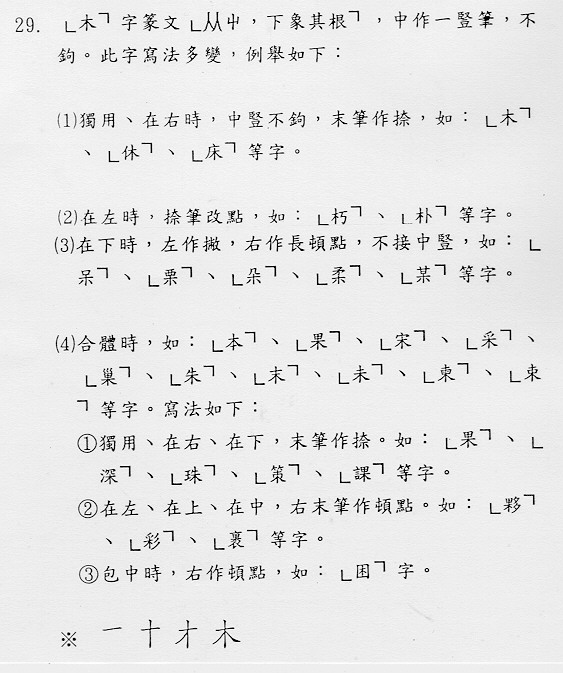 29. ﹂木﹁字篆文﹂从屮,下象其根﹁,中作一豎筆,不
鉤。此字寫法多變,例舉如下:
⑴獨用、在右時,中豎不鉤,末筆作捺,如:﹂木﹁
、﹂休﹁、﹂床﹁等字。
⑵在左時,捺筆改點,如:﹂朽﹁、﹂朴﹁等字。
⑶在下時,左作撇,右作長頓點,不接中豎,如:﹂
呆﹁、﹂栗﹁、﹂朵﹁、﹂柔﹁、﹂某﹁等字。
⑷合體時,如:﹂本﹁、﹂果﹁、﹂宋﹁、﹂采﹁、
﹂巢﹁、﹂朱﹁、﹂末﹁、﹂未﹁、﹂東﹁、﹂束
﹁等字。寫法如下:
①獨用、在右、在下,末筆作捺。如:﹂果﹁、﹂
深﹁、﹂珠﹁、﹂策﹁、﹂課﹁等字。
②在左、在上、在中,右末筆作頓點。如:﹂夥﹁
、﹂彩﹁、﹂裹﹁等字。
③包中時,右作頓點,如:﹂困﹁字。
※ 一十才木